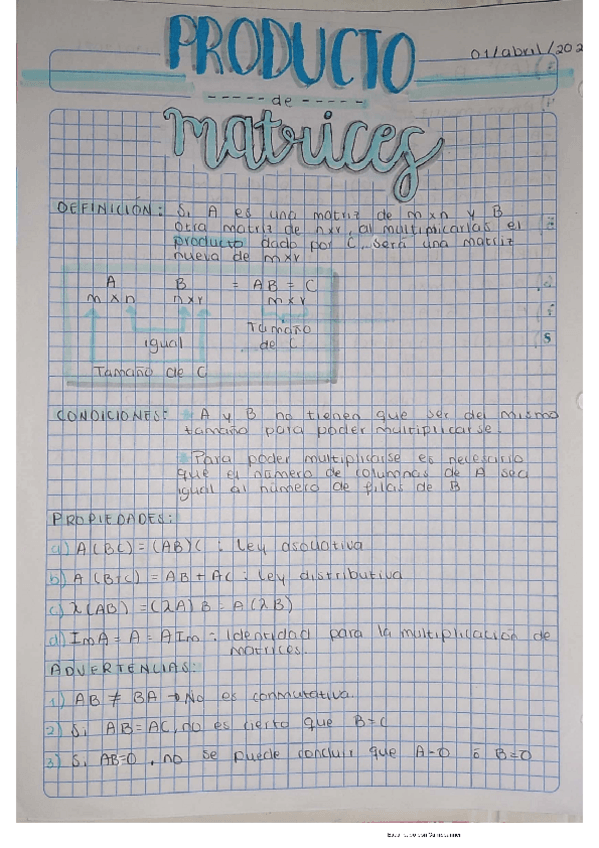 PRODUCTO
01/abril/202
de
matrices
DEFINICIÓN: Si A es una matriz de mxn y B
otra matriz de nxr, al multimicarlas el
producto dado por C, será una matriz
nueva de mxr
A B = AB = C
m x n n x r m x r
igual
Tamaño
de C
Tamaño de C
CONDICIONES: A y B no tienen que ser del mismo
tamaño para poder multiplicarse.
Para poder multiplicarse es necesario
que el número de columnas de A sea
igual al número de filas de B
PROPIEDADES:
a) A(BC) = (AB)C : Ley asociativa
b) A (B+C) = AB + AC : Ley distributiva
c) λ(AB) = (λA) B = A (λB)
d) ImA = A = AIm : Identidad para la multiplicación de
matrices.
ADVERTENCIAS:
1) AB ≠ BA → No es conmutativa.
2) Si AB = AC, no es cierto que B=C
3) Si AB=0, no se puede concluir que A=0 ó B=0